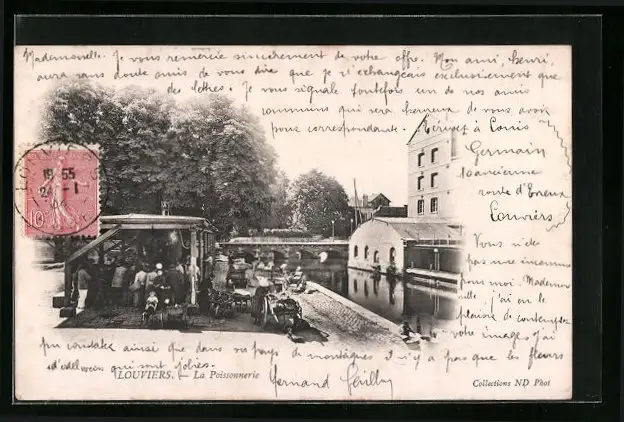 Mademoiselle. Je vous remercie sincèrement de votre offre. Mon ami, henri,
aura sans doute omis de vous dire que je n'échangeais exclusivement que
des lettres. Je vous signale toutefois un de nos amis
communs qui sera heureux de vous avoir
pour correspondante. Ecrivez à Louis
Germain
ancienne
route d'Evreux
Louviers
Vous n'êtes
pas une inconnue
pour moi. Mademoi
selle, j'ai eu le
plaisir de contempler
votre image, j'ai
pu constater ainsi que dans vos pays de montagnes il n'y a pas que les fleurs
qui sont jolies.
Fernand
LOUVIERS. — La Poissonnerie
Collections ND Phot
10